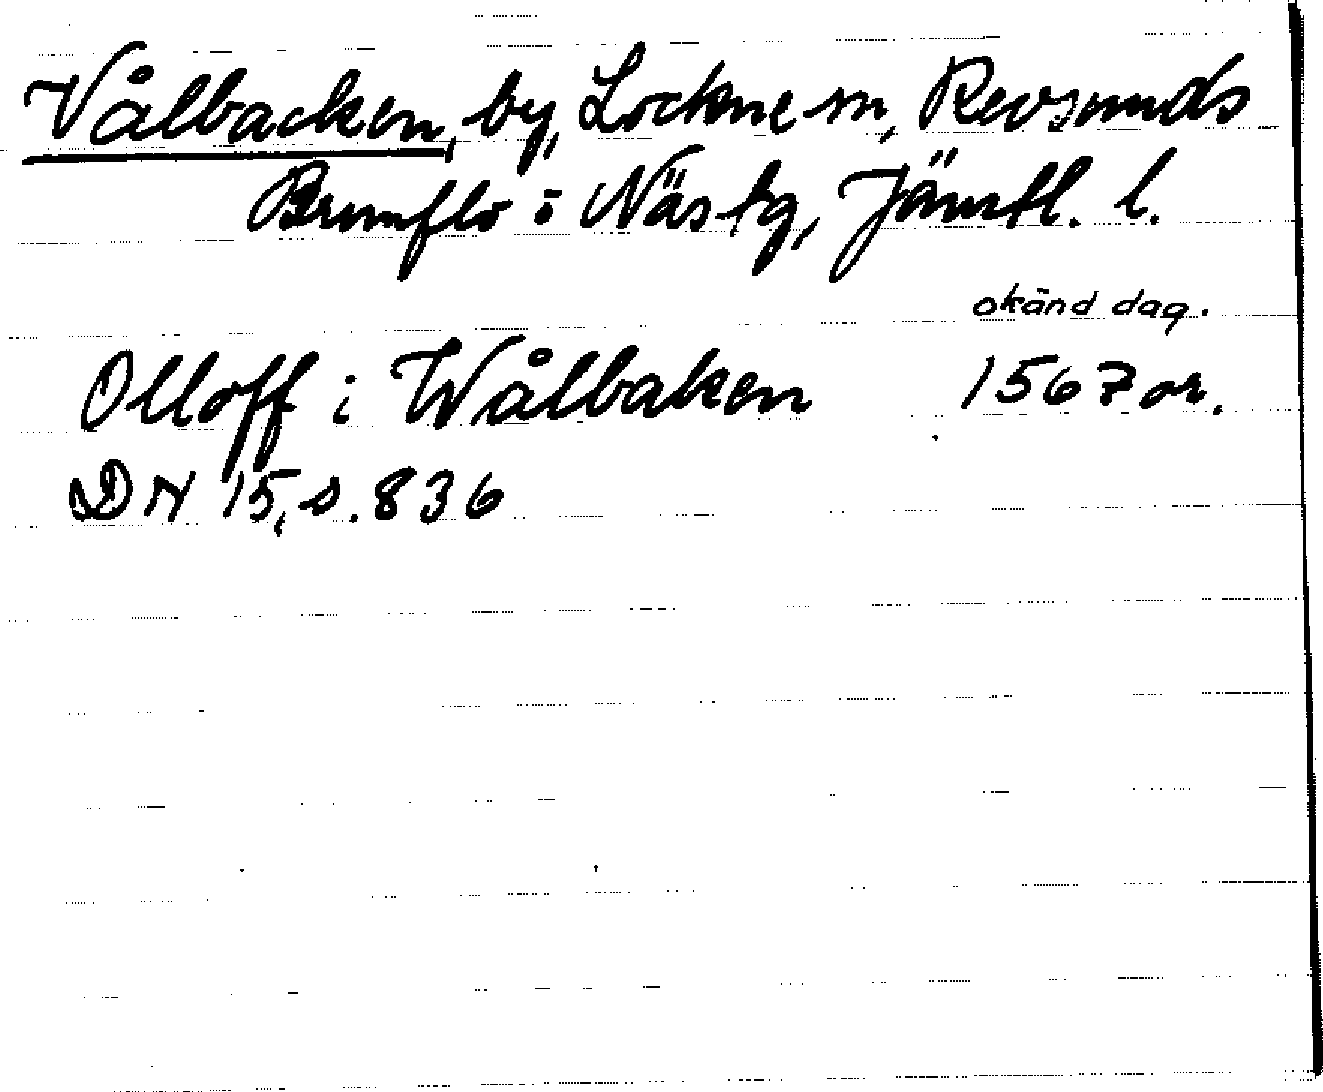 Vålbacken, by, Lockne sn, Revsunds
Brunflo i Näs tg, Jämtl. l.
okänd dag.
Olloff i Wålbaken 1567 or.
DN 15, s. 836